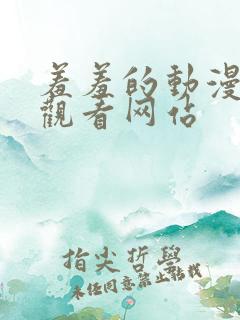 羞羞的動漫
觀看网佔
指尖哲學
未任同意禁止転載